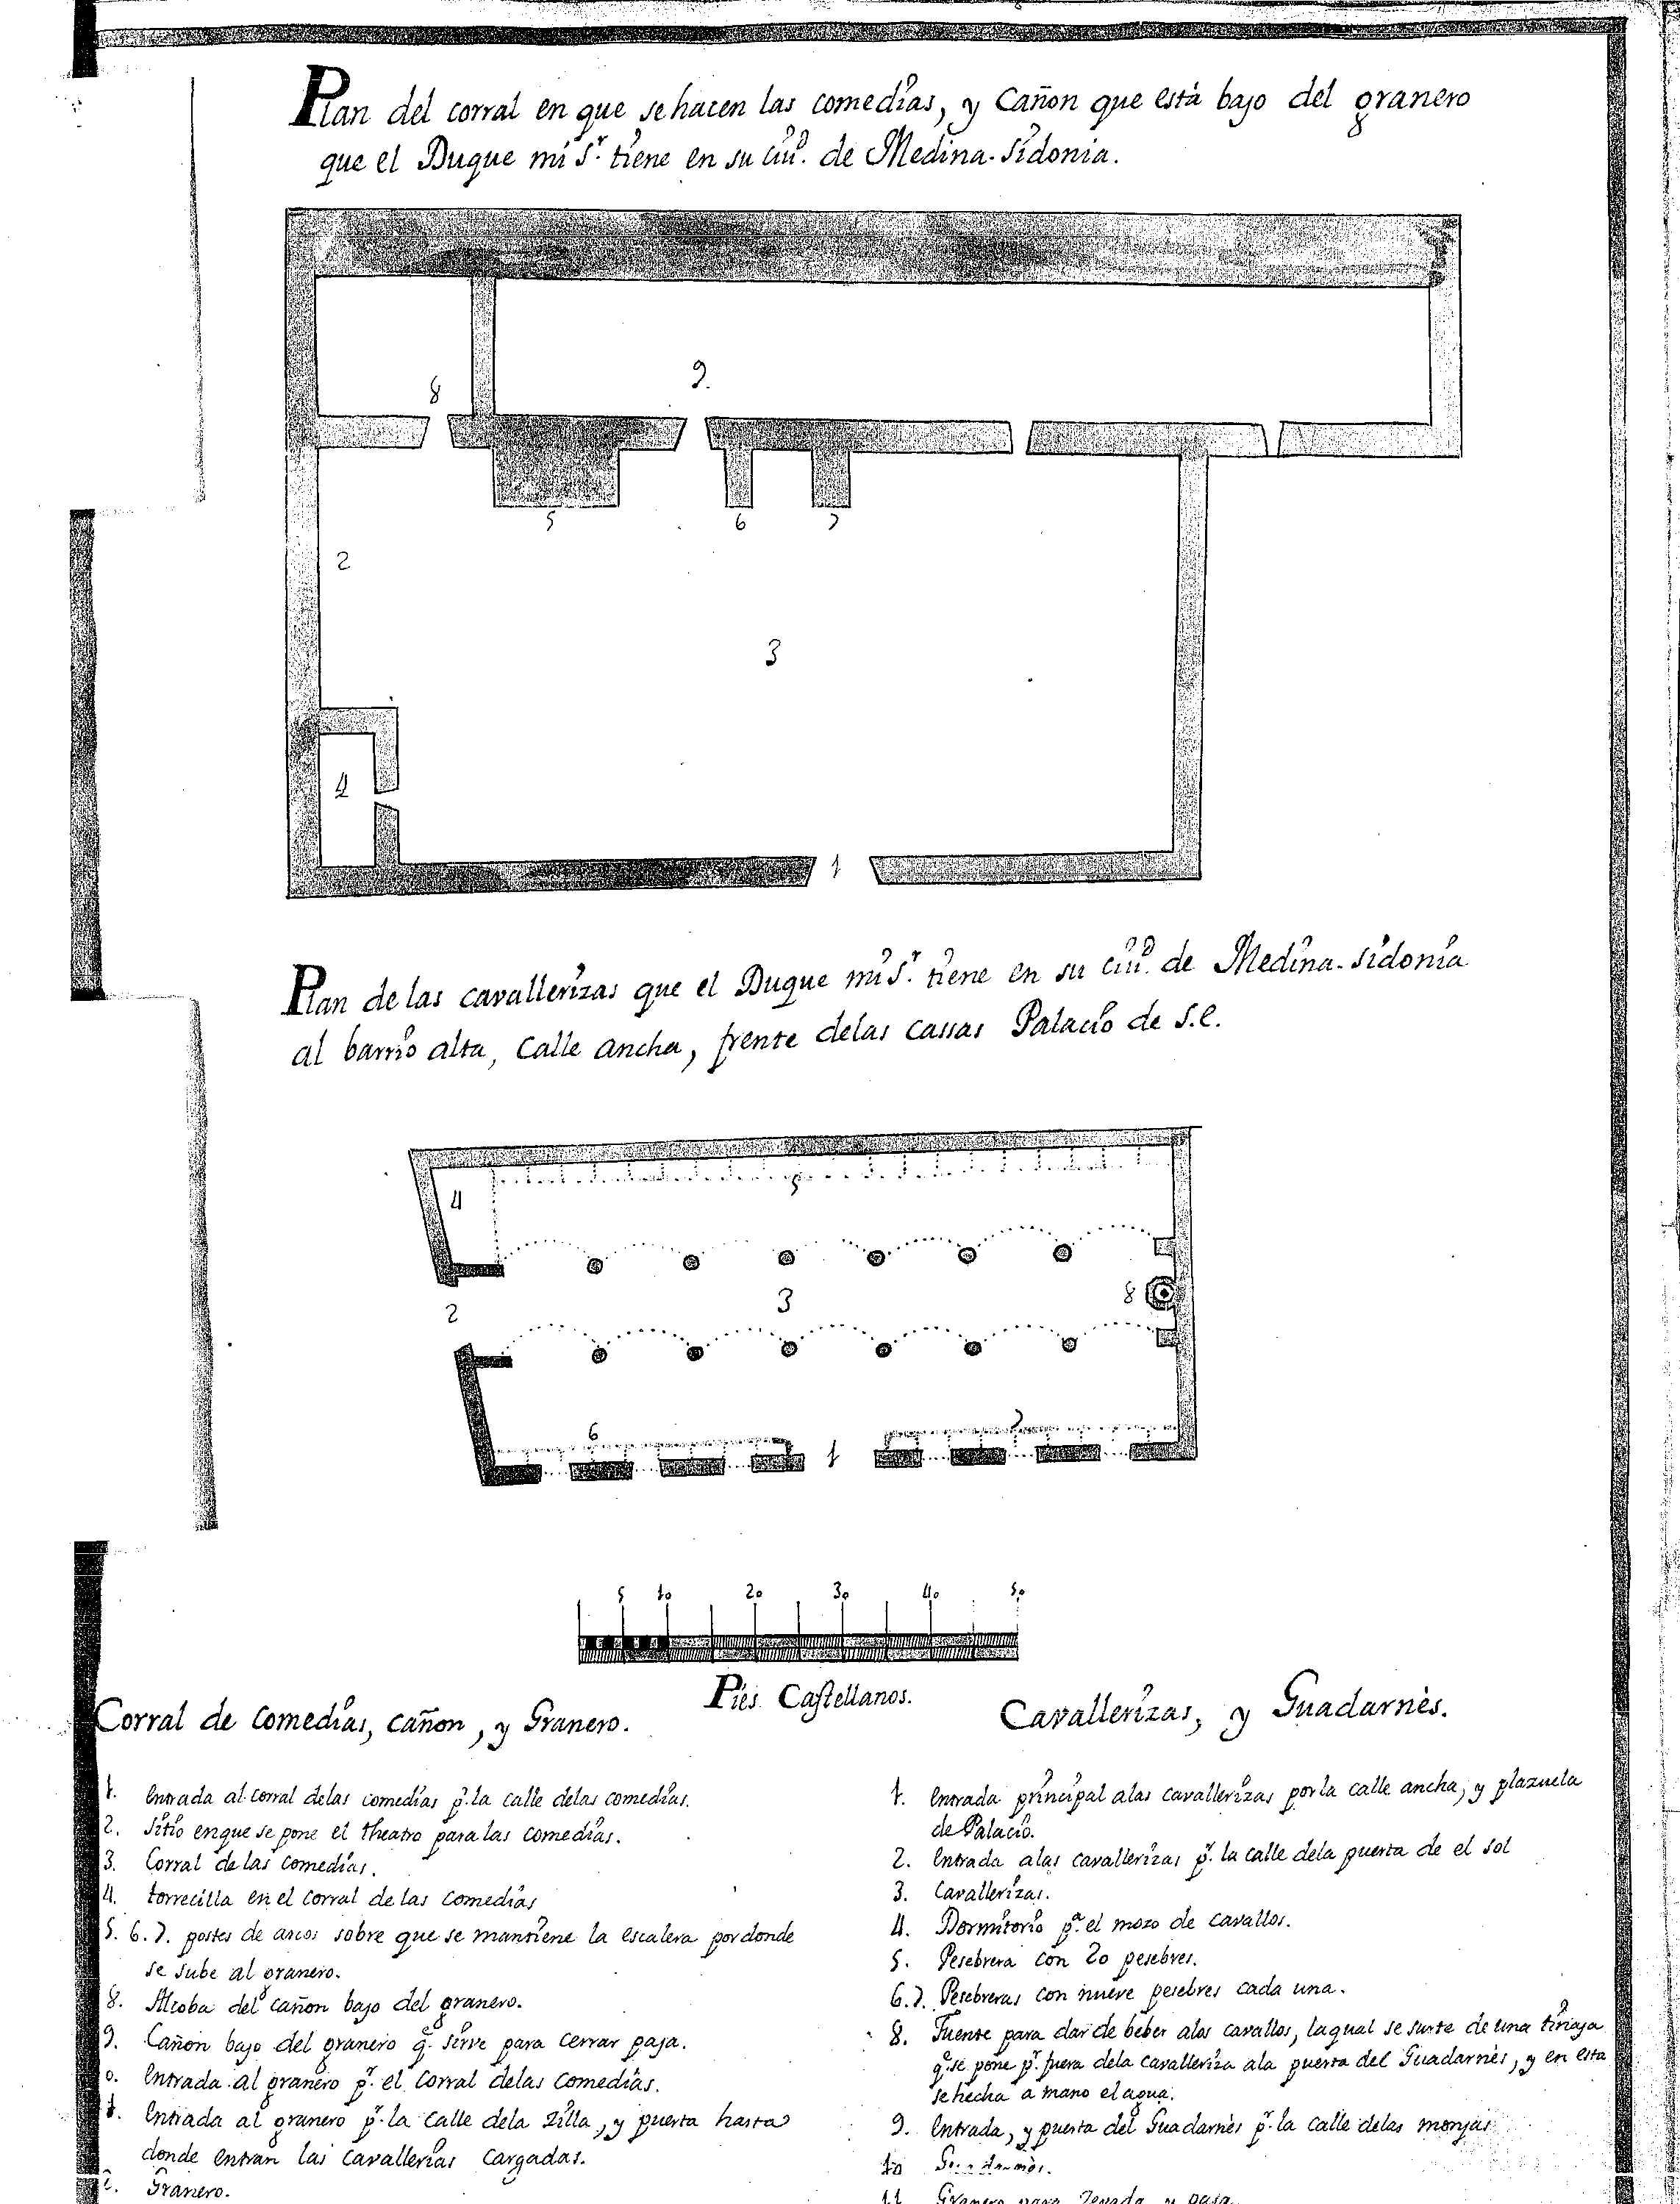 Plan del corral en que se hacen las comedias, y Cañon que està bajo del granero
que el Duque mi Sr. tiene en su ciud. de Medina-Sidonia.
8
9.
5
6
7
2
3
4
1
Plan de las cavallerizas que el Duque mi Sr. tiene en su ciud. de Medina-Sidonia
al barrio alta, Calle ancha, frente delas cassas Palacio de S.E.
4
5
2
3
8
6
7
1
5 10 20 30 40 50
Pies Castellanos.
Corral de comedias, cañon, y Granero.
1. Entrada al corral delas comedias pr. la calle delas comedias.
2. Sitio enque se pone el theatro para las comedias.
3. Corral de las comedias.
4. torrecilla en el corral de las comedias
5. 6. 7. postes de arcos sobre que se mantiene la escalera pordonde
se sube al granero.
8. Alcoba del cañon bajo del granero.
9. Cañon bajo del granero q. sirve para cerrar paja.
0. Entrada al granero pr. el corral delas comedias.
1. Entrada al granero pr. la calle dela zilla, y puerta hasta
donde entran las cavallerias cargadas.
2. Granero.
Cavallerizas, y Guadarnès.
1. Entrada principal alas cavallerizas porla calle ancha, y plazuela
de Palacio.
2. Entrada alas cavallerizas pr. la calle dela puerta de el sol
3. Cavallerizas.
4. Dormitorio pa. el mozo de cavallos.
5. Pesebrera con 20 pesebres.
6. 7. Pesebreras con nueve pesebres cada una.
8. Fuente para dar de beber alos cavallos, laqual se surte de una tinaja
q. se pone pr. fuera dela cavalleriza ala puerta del Guadarnès, y en esta
se hecha a mano el agua.
9. Entrada, y puerta del Guadarnès pr. la calle delas monjas
10 Guadarnès.
11 Granero para Zevada y paja.